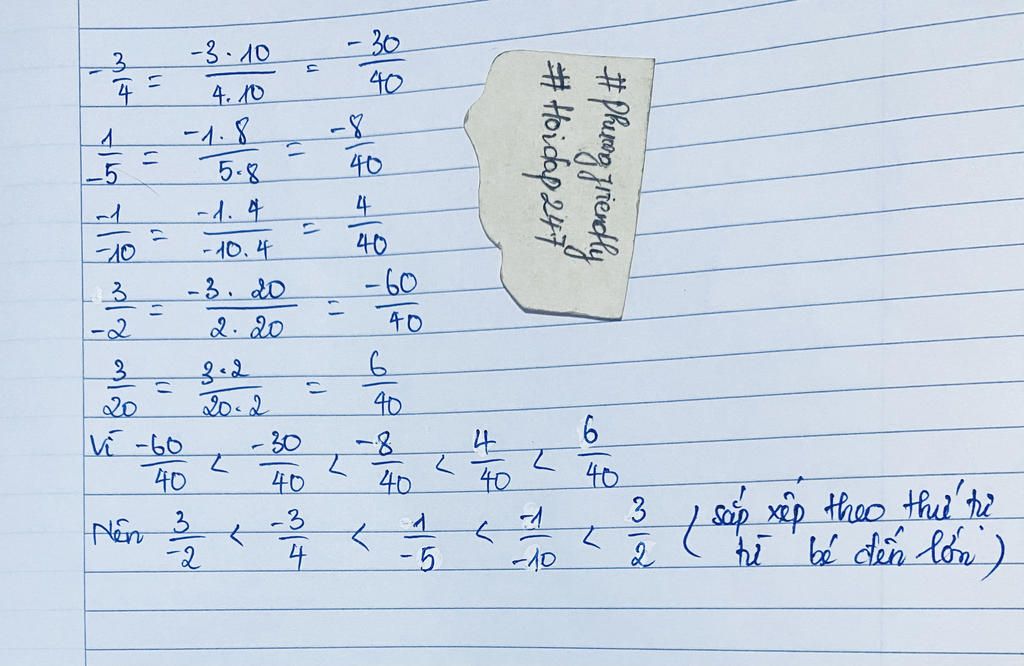 -3/4 = -3·10/4.10 = -30/40
1/-5 = -1.8/5.8 = -8/40
-1/-10 = -1.4/-10.4 = 4/40
3/-2 = -3.20/2.20 = -60/40
3/20 = 3.2/20.2 = 6/40
Vì -60/40 < -30/40 < -8/40 < 4/40 < 6/40
Nên 3/-2 < -3/4 < 1/-5 < -1/-10 < 3/2 (sắp xếp theo thứ tự
từ bé đến lớn)
#phuongfriendly
#Hoidap247